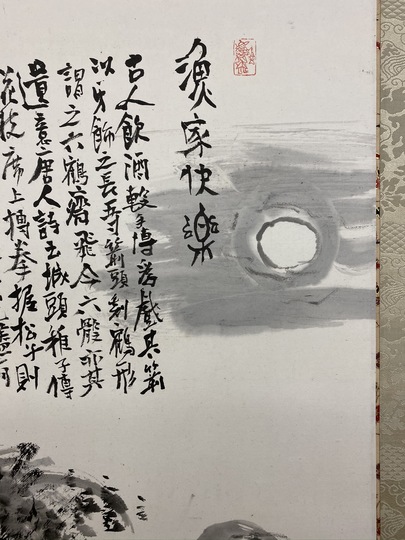 漁家快樂
古人飲酒較手博為戲其箭
以牙飾之長五寸箭頭刻鶴形
謂之六鶴齊飛今六骰亦其
遺意唐人詩云城頭稚子傳
花枝席上搏拳握松子則